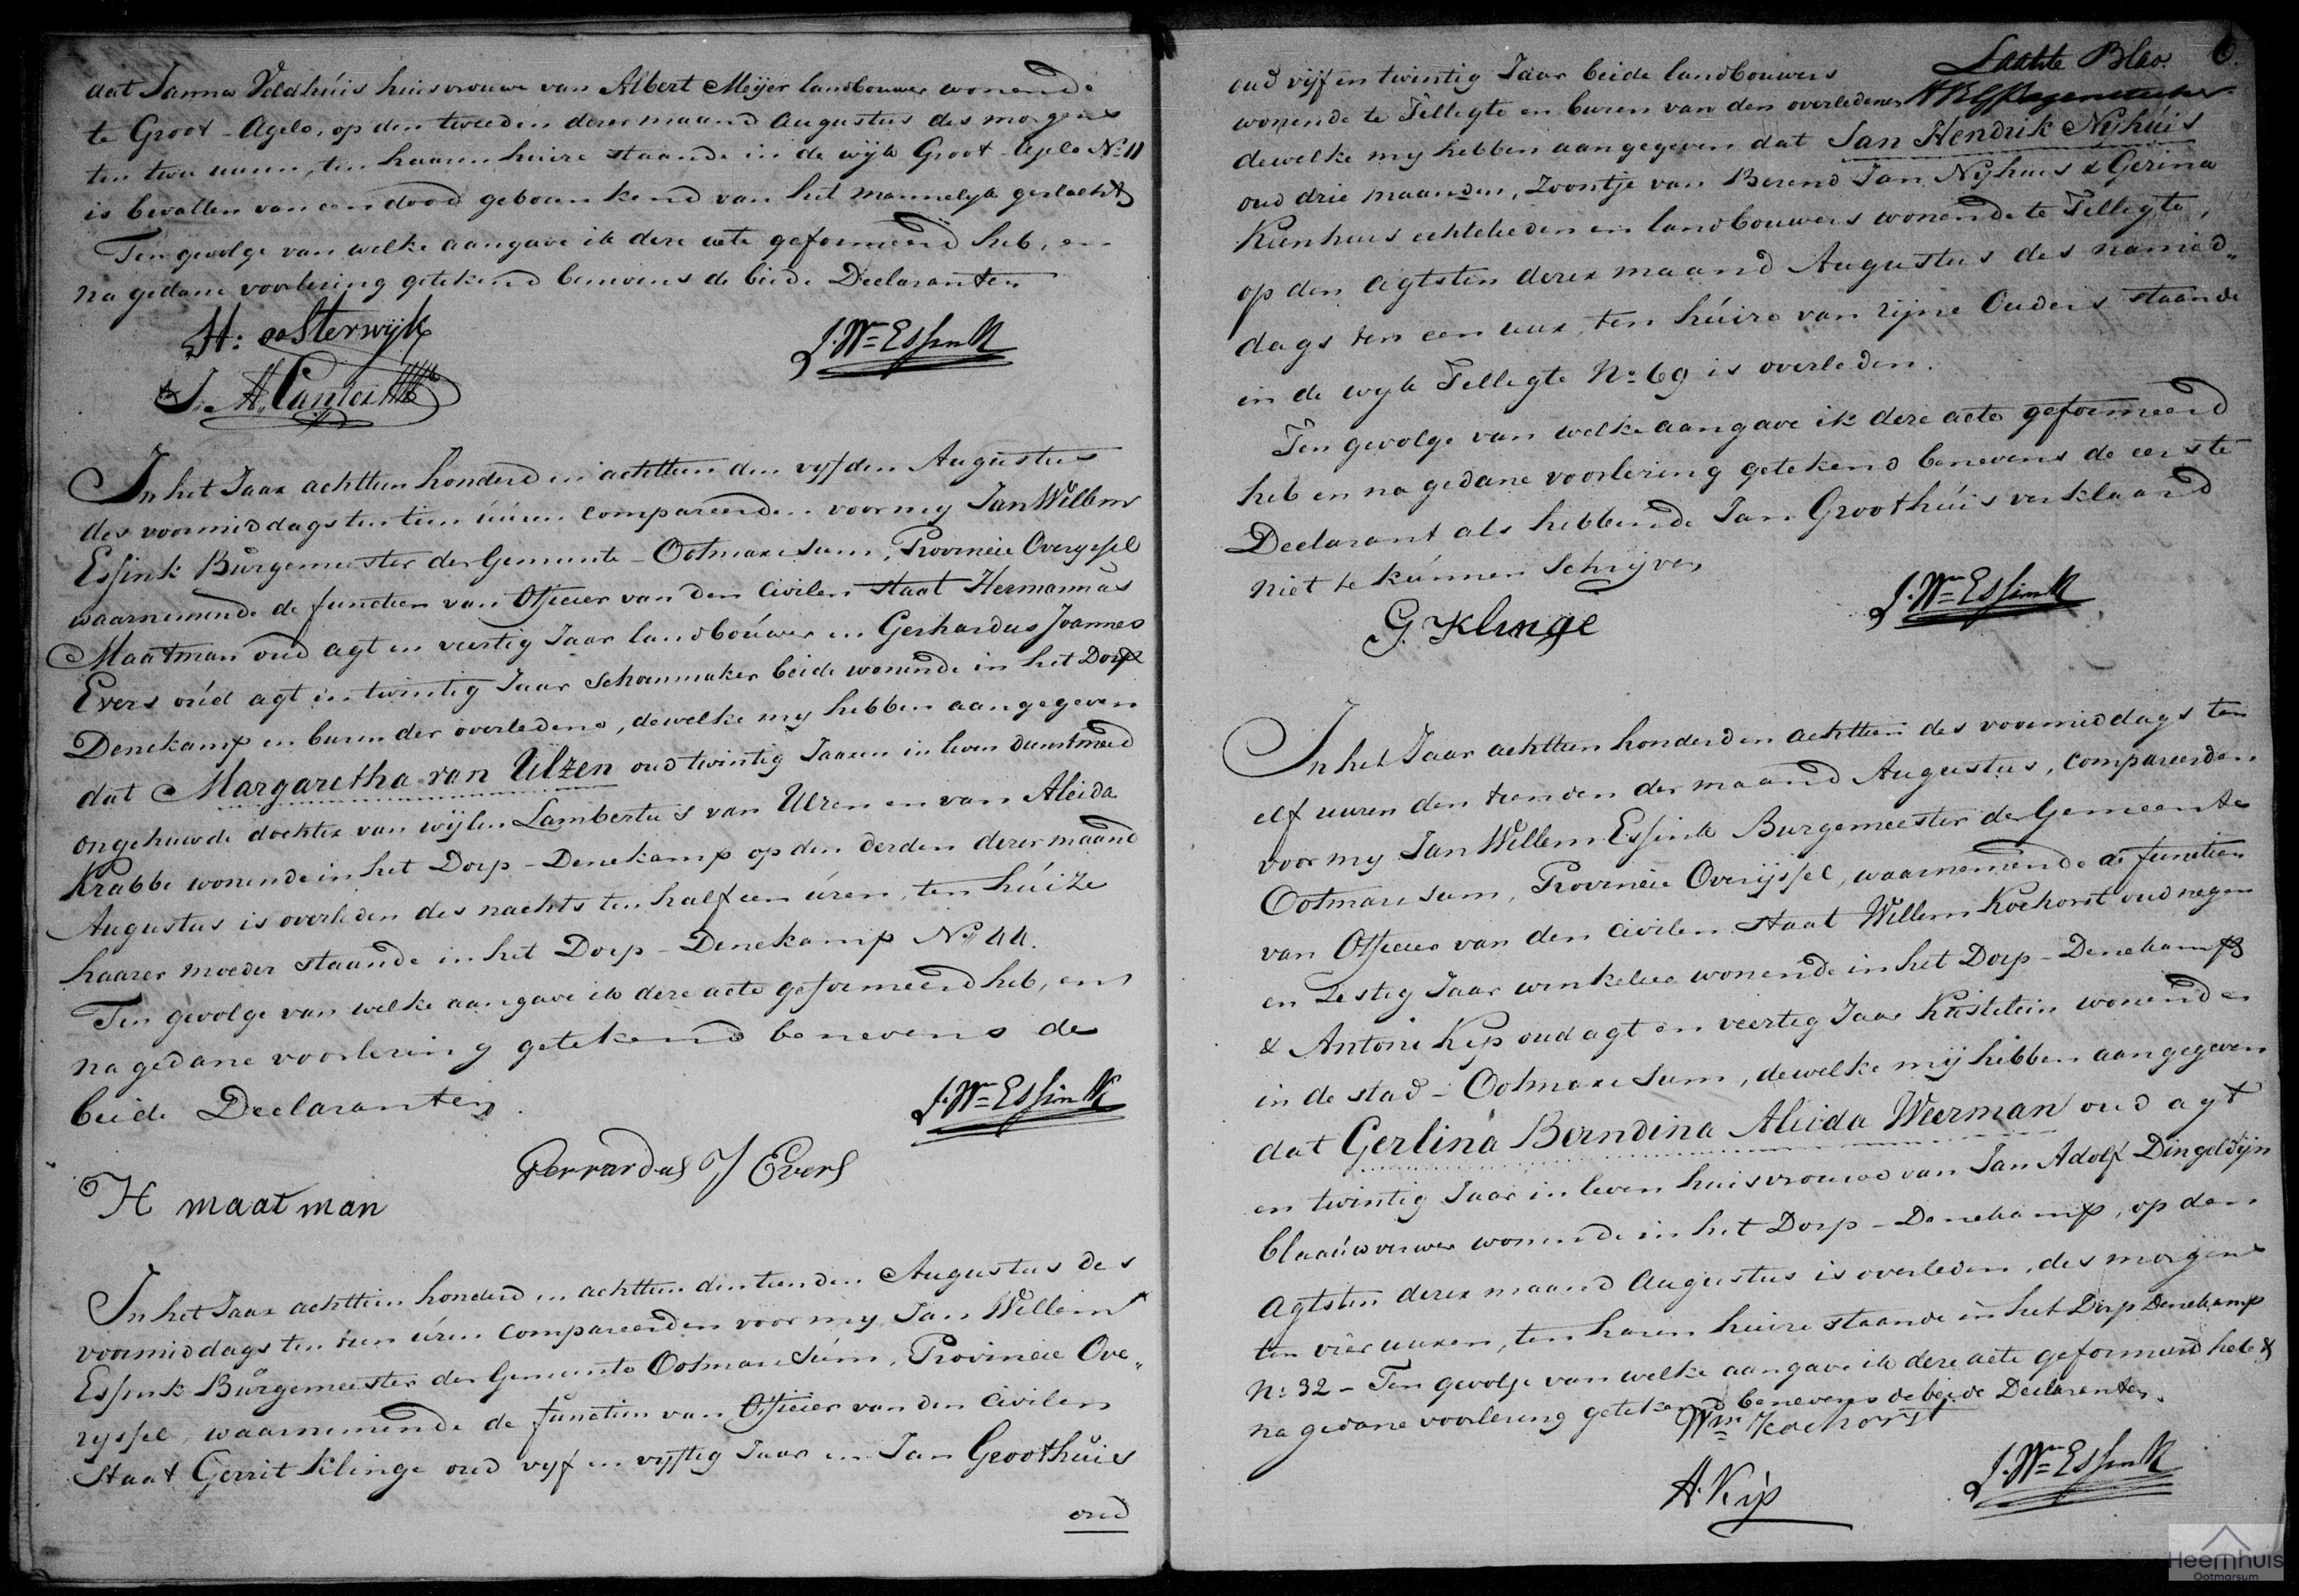 dat Janna Veldhúis huisvrouwe van Albert Meijer landbouwer wonende
te Groot-Agelo, op den tweeden dezer maand Augustus des morgens
ten twee uuren, ten haaren huize staande in de wijk Groot-Agelo No 11
is bevallen van een dood geboren kend van het mannelyk geslacht
Ten gevolge van welke aangave ik deze acte geformeerd heb, en
na gedane voorlezing getekend benevens de beide Declaranten
H: oosterwijk
J. Wm Essink
J. A. Cantor
In het Jaar achttien honderd en achttien den vyfden Augustus
des voormiddags ten tien úúren compareerden voor my Jan Willem
Essink Búrgemeester der Gemeente-Ootmarssum, Provincie Overyssel
waarnemende de functien van Officier van den Civilen staat Hermannus
Maatman oud agt en veertig Jaar landboúwer en Gerhardus Joannes
Evers oúd agt en twintig Jaar Schoenmaker beide wonende in het Dorp
Denekamp en buren der overledene, dewelke my hebben aangegeven
dat Margaretha van Ulzen oud twintig Jaaren in leven dienstmeid
ongehuwde dochter van wijlen Lambertus van Ulzen en van Aleida
Krabbe wonende in het Dorp-Denekamp op den derden dezer maand
Augustus is overleden des nachts ten half een úren, ten húize
haarer moeder staande in het Dorp-Denekamp No 44.
Ten gevolge van welke aangave ik deze acte geformeerd heb, en
na gedane voorlezing getekend benevens de
beide Declaranten.
J. Wm Essink
Gerrardus J Evers
H maatman
In het Jaar achttien honderd en achttien den tienden Augustus des
voormiddags ten tien úren compareerden voor my Jan Willem
Essink Búrgemeester der Gemeente Ootmarssúm, Provincie Ove„
ryssel, waarnemende de functien van Officier van den Civilen
Staat Gerrit Klinge oud vyf en vyftig Jaar en Jan Groothuis
oud
Laatste Blad. 6.
oud vijf en twintig Jaar beide landbouwers
wonende te Tilligte en buren van den overledenen
dewelke my hebben aangegeven dat Jan Hendrik Nijhúis
oud drie maanden, Zoontje van Berend Jan Nijhuis & Gezina
Kienhuis echtelieden en landbouwers wonende te Tilligte,
op den Agtsten dezer maand Augustus des namid„
dags ten een uur, ten húize van zijne Ouders staande
in de wyk Tilligte No 69 is overleden.
Ten gevolge van welke aangave ik deze acte geformeerd
heb en na gedane voorlezing getekend benevens de eerste
Declarant als hebbende Jan Groothúis verklaard
niet te kúnnen Schrijven
G. Klinge
J. Wm Essink
In het Jaar achttien honderd en achttien des voormiddags ten
elf uuren den tienden der maand Augustus, compareerden
voor my Jan Willem Essink Burgemeester der Gemeente
Ootmarssum, Provincie Overijssel, waarnemende de functien
van Officier van den Civilen Staat Willem Koehorst oud negen
en Zestig Jaar winkelier wonende in het Dorp-Denekamp
& Antoni Kip oud agt en veertig Jaar Kastelein wonende
in de stad-Ootmarssum, dewelke mij hebben aangegeven
dat Gerlina Berndina Aleida Weerman oud agt
en twintig Jaar in leven huisvrouwe van Jan Adolf Dingeldijn
blaaúwverwer wonende in het Dorp-Denekamp, op den
Agtsten dezer maand Augustus is overleden, des morgens
ten vier uuren, ten haren huize staande in het Dorp Denekamp
No: 32 - Ten gevolge van welke aangave ik deze acte geformeerd heb &
na gedane voorlezing getekend benevens de beide Declaranten.
Wm Koehorst
J. Wm Essink
A. Kip
Heemhuis
Ootmarsum